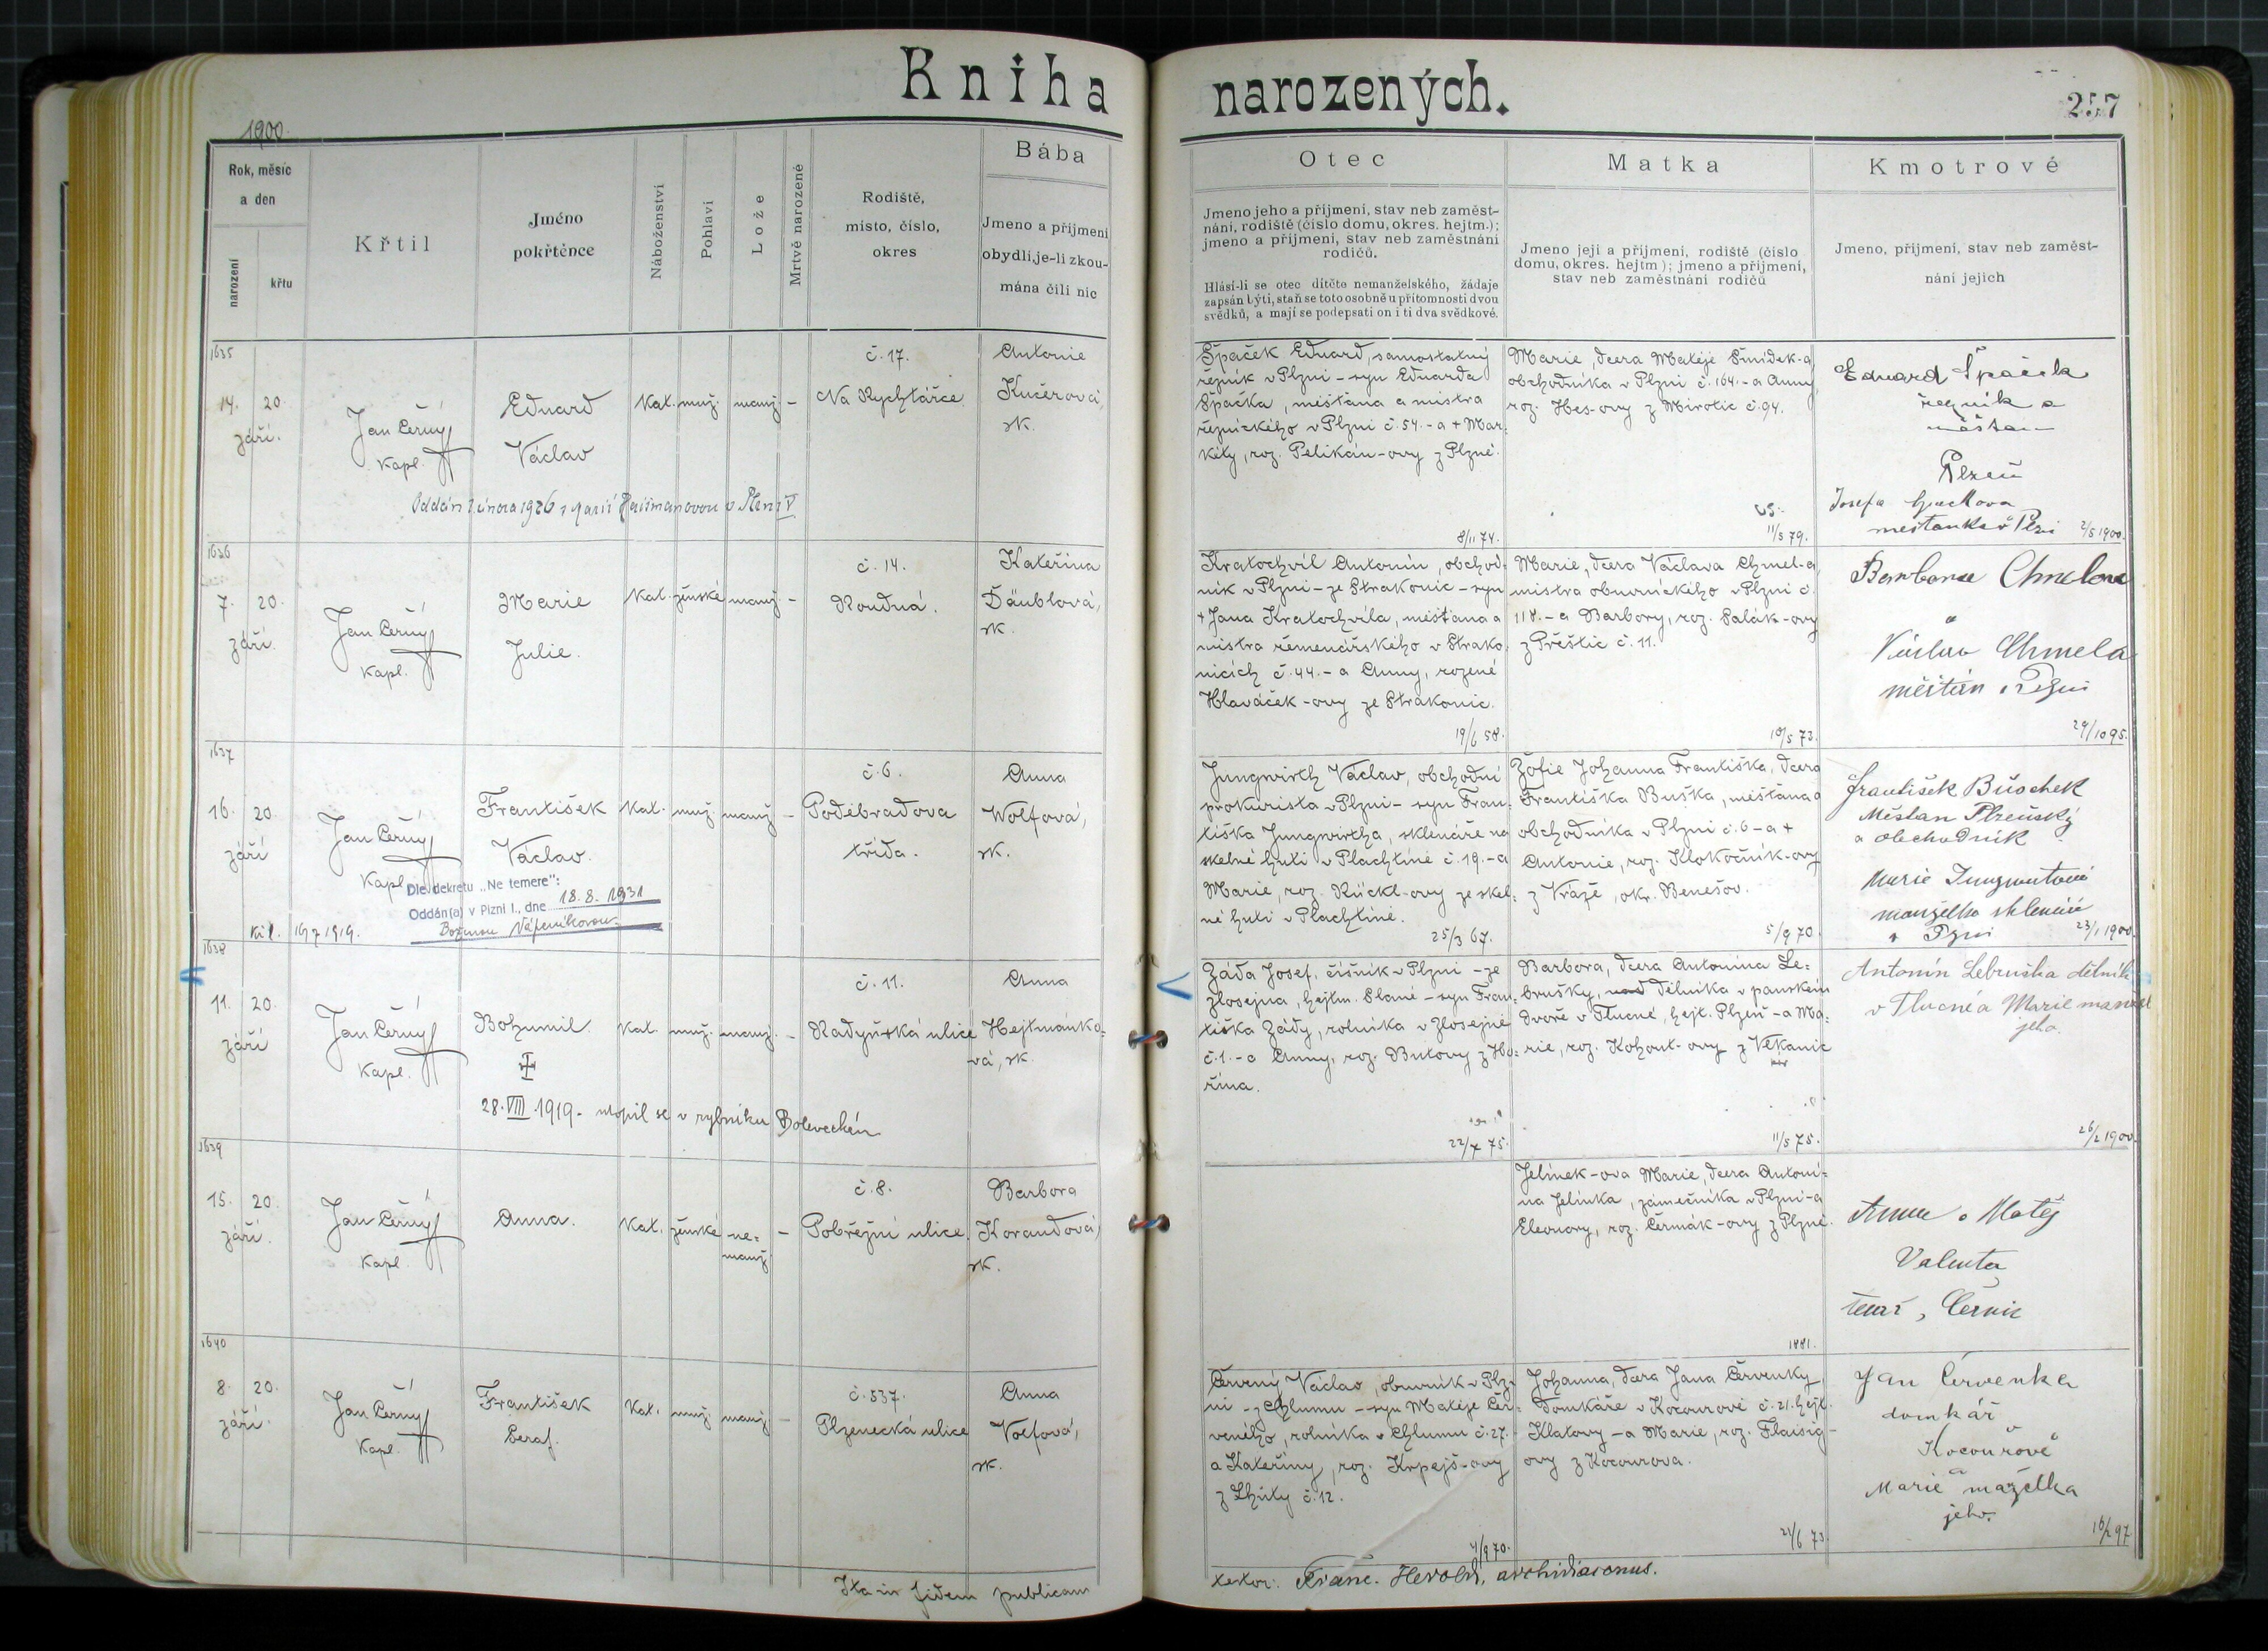 Kniha narozených.
257
1900.
Rok, měsíc
a den
narození
křtu
Křtil
Jméno
pokřtěnce
Náboženství
Pohlaví
Lože
Mrtvě narozené
Rodiště,
místo, číslo,
okres
Bába
Jmeno a příjmení
obydlí, je-li zkou-
mána čili nic
Otec
Jmeno jeho a příjmení, stav neb zaměst-
nání, rodiště (číslo domu, okres. hejtm.);
jmeno a příjmení, stav neb zaměstnání
rodičů.
Hlásí-li se otec dítěte nemanželského, žádaje
zapsán býti, staň se toto osobně u přítomnosti dvou
svědků, a mají se podepsati on i ti dva svědkové.
Matka
Jmeno její a příjmení, rodiště (číslo
domu, okres. hejtm); jmeno a příjmení,
stav neb zaměstnání rodičů
Kmotrové
Jmeno, příjmení, stav neb zaměst-
nání jejich
1635
14. 20.
září.
Jan Černý
kapl.
Eduard
Václav
Kat. muž. manž. –
č. 17.
Na Rychtářce
Antonie
Kučerová,
zk.
Oddán 7. února 1926 s Marií v Plzni V
Špaček Eduard, samostatný
řezník v Plzni – syn Eduarda
Špačka, měšťana a mistra
řeznického v Plzni č. 54. – a + Mar-
kéty, roz. Pelikán-ovy z Plzně.
8/11 74.
Marie, dcera Matěje Šmídek-a
obchodníka v Plzni č. 164. – a Anny
roz. Hes-ovy z Mirotic č. 94.
11/5 79.
Eduard Špaček
řezník a
měšťan
Plzeň
Josefa
měšťanka v Plzni
2/5 1900.
1636
7. 20.
září.
Jan Černý
kapl.
Marie
Julie.
Kat. ženské manž. –
č. 14.
Roudná.
Kateřina
Däublová,
zk.
Kratochvíl Antonín, obchod-
ník v Plzni – ze Strakonic – syn
+ Jana Kratochvíla, měšťana a
mistra řemenářského v Strako-
nicích č. 44. – a Anny, rozené
Hlaváček-ovy ze Strakonic.
19/6 58.
Marie, dcera Václava Chmel-a
mistra obuvnického v Plzni č.
118. – a Barbory, roz. Salák-ovy
z Přeštic č. 11.
10/5 73.
Barbora Chmelova
a
Václav Chmela
měšťan v Plzni
29/10 95.
1637
16. 20.
září
Jan Černý
kapl.
František
Václav.
Kat. muž. manž. –
č. 6.
Poděbradova
třída.
Anna
Wolfová,
zk.
Dle dekretu „Ne temere":
Oddán(a) v Plzni I., dne 18.8.1931
Boženou Nápeníkovou
1919.
Jungwirth Václav, obchodní
prokurista v Plzni – syn Fran-
tiška Jungwirtha, sklenáře na
skelné huti v Plachtíně č. 19. – a
Marie, roz. Rückl-ovy ze skel-
né huti v Plachtíně.
25/3 67.
Žofie Johanna Františka, dcera
Františka Buška, měšťana a
obchodníka v Plzni č. 6 – a +
Antonie, roz. Klokočník-ovy
z Vráže, okr. Benešov.
5/9 70.
František Bušchek
Měšťan Plzeňský
a obchodník
Marie Jungwirtová
manželka sklenáře
v Plzni
23/1 1900.
1638
11. 20.
září
Jan Černý
kapl.
Bohumil.
Kat. muž. manž. –
č. 11.
Radyňská ulice
Anna
Hejtmánko-
vá, zk.
28. VIII 1919 – utopil se v rybníku Boleveckém
Záda Josef, číšník v Plzni – ze
Zlosejna, hejtm. Slané – syn Fran-
tiška Zády, rolníka v Zlosejně
č. 1. – a Anny, roz. Butovy z Ho-
řína.
22/7 75.
Barbora, dcera Antonína Le-
brušky, dělníka v panském
dvoře v Tlucné, hejt. Plzeň – a Ma-
rie, roz. Kohout-ovy z Vlkanic
11/5 75.
Antonín Lebruška dělník
v Tlucné a Marie manžel
jeho.
26/2 1900.
1639
15. 20.
září.
Jan Černý
kapl.
Anna.
Kat. ženské ne-
manž. –
č. 8.
Pobřežní ulice.
Barbora
Korandová,
zk.
Jelínek-ova Marie, dcera Antoní-
na Jelínka, zámečníka v Plzni – a
Eleonory, roz. Čermák-ovy z Plzně.
1881.
Anna a Matěj
Valenta
Černic
1640
8. 20.
září.
Jan Černý
kapl.
František
Seraf.
Kat. muž. manž. –
č. 537.
Plzenecká ulice
Anna
Wolfová,
zk.
Červený Václav, obuvník v Plz-
ni – z Chlumu – syn Matěje Čer-
veného, rolníka v Chlumu č. 27.
a Kateřiny, roz. Krpejš-ovy
z Lhůty č. 12.
4/9 70.
Johanna, dcera Jana Červenky,
domkáře v Kocourově č. 21. hejt.
Klatovy – a Marie, roz. Flaisig-
ovy z Kocourova.
21/6 73.
Jan Červenka
domkář
v
Kocourově
a
Marie mažélka
jeho.
16/2 97
Ita in fidem publicam
testor: Franc. Herold, archidiaconus.